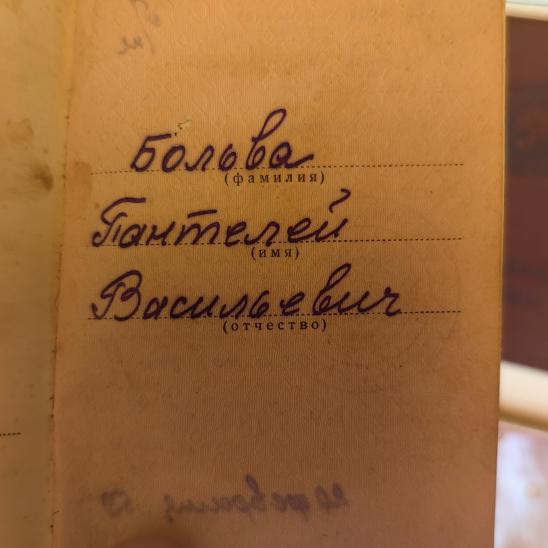 Больва
(фамилия)
Пантелей
(имя)
Васильевич
(отчество)